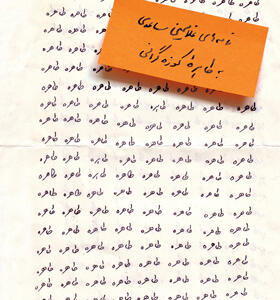 نامه‌های غلامحسین ساعدی
به طاهرهٔ کوزه‌گرانی
طاهره طاهره طاهره
طاهره طاهره طاهره
طاهره طاهره طاهره
طاهره طاهره طاهره
طاهره طاهره طاهره
طاهره طاهره طاهره طاهره طاهره
طاهره طاهره طاهره طاهره طاهره طاهره طاهره طاهره
طاهره طاهره طاهره طاهره طاهره طاهره طاهره طاهره
طاهره طاهره طاهره طاهره طاهره طاهره طاهره طاهره
طاهره طاهره طاهره طاهره طاهره طاهره طاهره طاهره
طاهره طاهره طاهره طاهره طاهره طاهره طاهره طاهره
طاهره طاهره طاهره طاهره طاهره طاهره طاهره طاهره
طاهره طاهره طاهره طاهره طاهره طاهره طاهره طاهره
طاهره طاهره طاهره طاهره طاهره طاهره طاهره طاهره
طاهره طاهره طاهره طاهره طاهره طاهره طاهره طاهره
طاهره طاهره طاهره طاهره طاهره طاهره طاهره طاهره
طاهره طاهره طاهره طاهره طاهره طاهره طاهره طاهره
طاهره طاهره طاهره طاهره طاهره طاهره طاهره طاهره